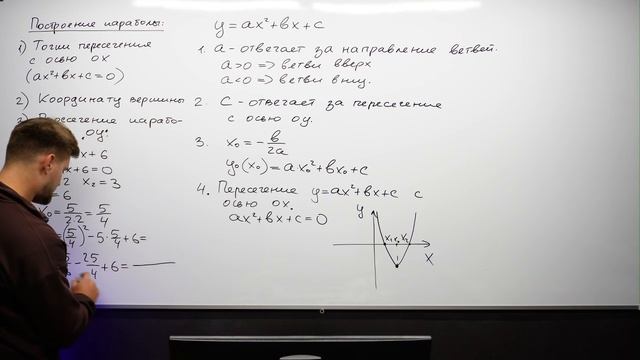 Построение параболы:
1) Точки пересечения
с осью ох
(ax²+вx+c=0)
2) Координату вершины
оу:
x+6
x+6=0
2 x₂=3
=6
x₀=5/2·2=5/4
=(5/4)²-5·5/4+6=
-25/4+6=
y=ax²+вx+c
1. a-отвечает за направление ветвей.
a>0=>ветви вверх
a<0=>ветви вниз.
2. C-отвечает за пересечение
с осью оу.
3. x₀=-в/2a
y₀(x₀)=a·x₀²+вx₀+c
4. Пересечение y=ax²+вx+c с
осью ох.
ax²+вx+c=0
y
x₁ x₀ x₂
x